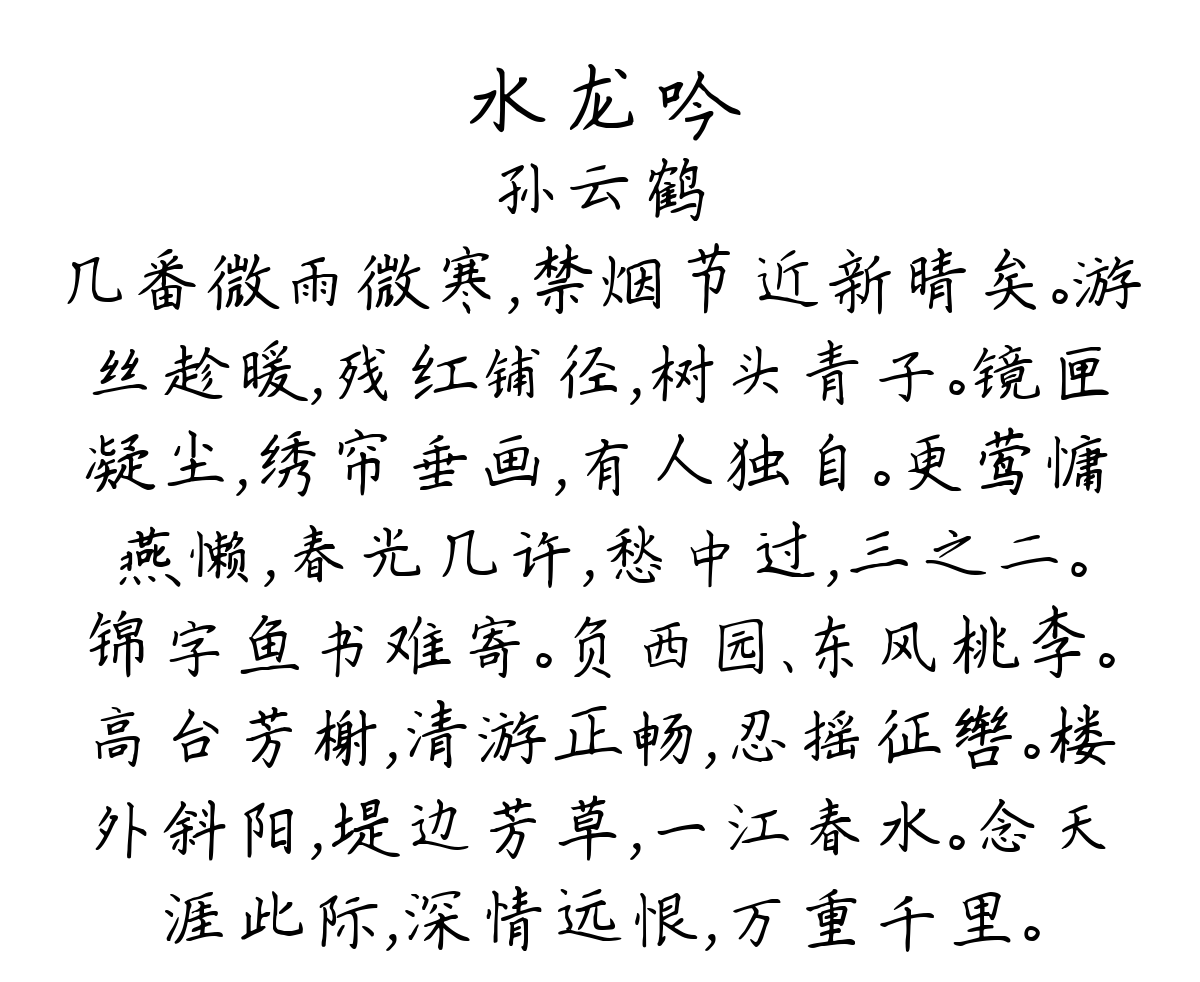 水龙吟
孙云鹤
几番微雨微寒,禁烟节近新晴矣。游
丝趁暖,残红铺径,树头青子。镜匣
凝尘,绣帘垂画,有人独自。更莺慵
燕懒,春光几许,愁中过,三之二。
锦字鱼书难寄。负西园、东风桃李。
高台芳榭,清游正畅,忍摇征辔。楼
外斜阳,堤边芳草,一江春水。念天
涯此际,深情远恨,万重千里。